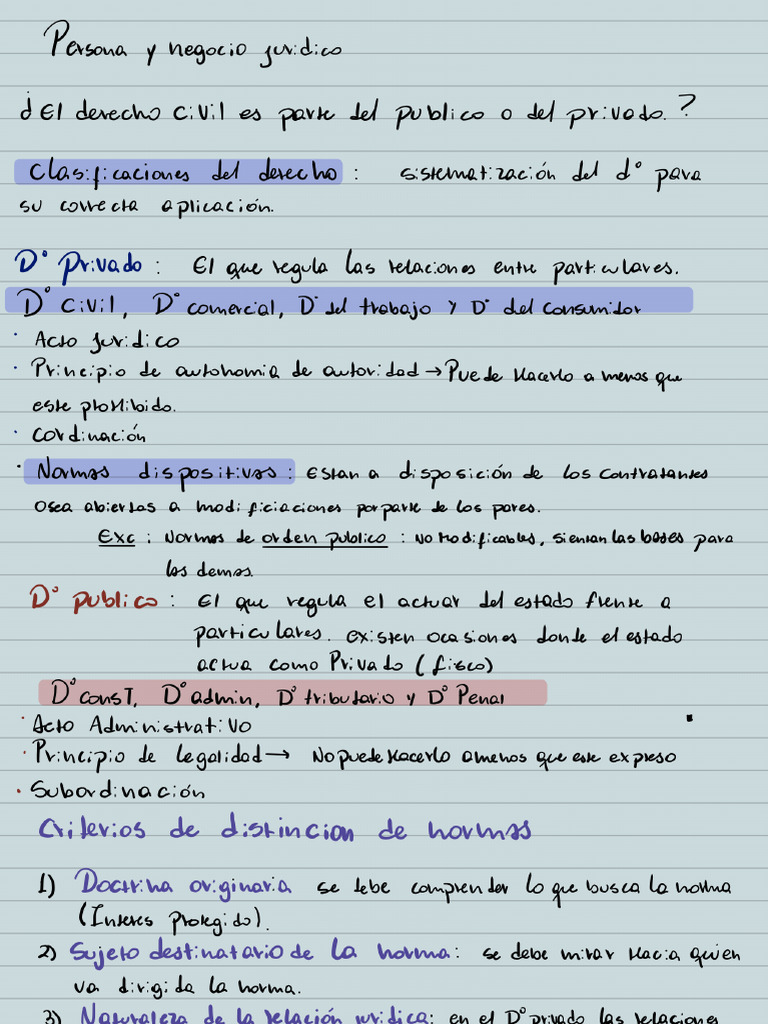 Persona y negocio juridico
¿El derecho civil es parte del publico o del privado.?
Clasificaciones del derecho : sistematización del d° para
su correcta aplicación.
D° Privado : El que regula las relaciones entre particulares.
D° civil, D° comercial, D° del trabajo y D° del consumidor
· Acto juridico
· Principio de autonomia de autoridad → Puede Hacerlo a menos que
este proHibido.
· cordinación
· Normas dispositivas : Estan a disposición de los contratantes
Osea abiertas a modificiaciones por parte de los pares.
Exc : Normas de orden publico : No Modificables, sientan las bases para
las demas.
D° publico : El que regula el actuar del estado frente a
particulares. existen ocasiones donde el estado
actua como Privado (fisco)
D° const, D° admin, D° tributario y D° Penal
· Acto Administrativo
· Principio de legalidad → No puede Hacerlo amenos que este expreso
· Subordinación
Criterios de distincion de normas
1) Doctrina originaria se debe comprender lo que busca la norma
(Interes protegido).
2) Sujeto destinatario de la norma : se debe mirar Hacia quien
va dirigida la norma.
3) Naturaleza de la relación juridica: en el D° privado las relaciones